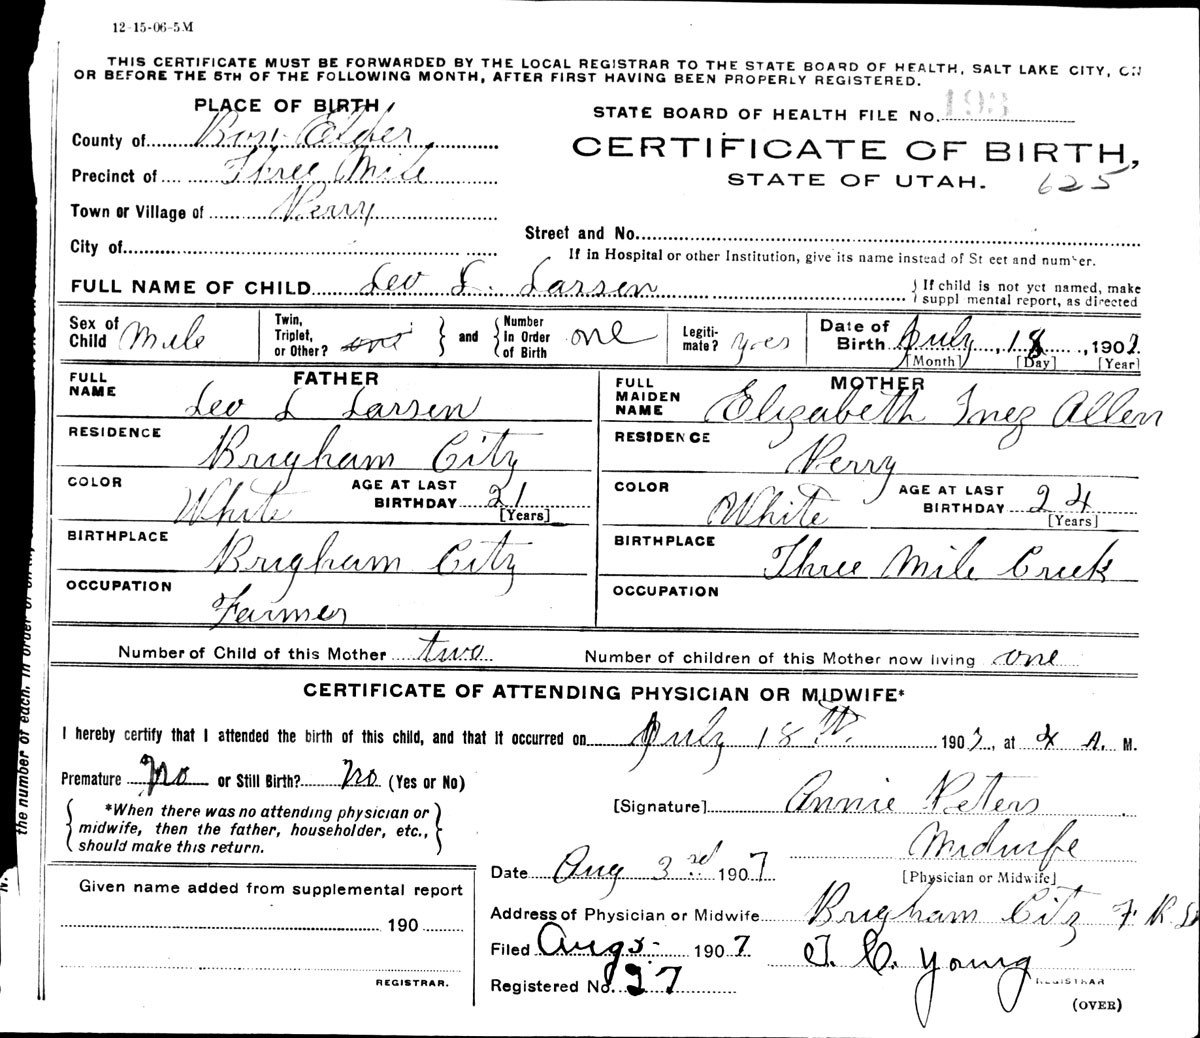 12-15-06-5M
THIS CERTIFICATE MUST BE FORWARDED BY THE LOCAL REGISTRAR TO THE STATE BOARD OF HEALTH, SALT LAKE CITY, ON
OR BEFORE THE 5TH OF THE FOLLOWING MONTH, AFTER FIRST HAVING BEEN PROPERLY REGISTERED.
PLACE OF BIRTH
STATE BOARD OF HEALTH FILE No. 193
County of Box Elder
CERTIFICATE OF BIRTH,
Precinct of Three Mile
STATE OF UTAH. 625
Town or Village of Perry
Street and No.
City of
If in Hospital or other Institution, give its name instead of St eet and number.
FULL NAME OF CHILD Leo L. Larsen
{ If child is not yet named, make
suppl mental report, as directed
Sex of Child Male
Twin, Triplet, or Other? one } and { Number In Order of Birth one
Legiti- mate? yes
Date of Birth July, 18, 1907
[Month] [Day] [Year]
FATHER
FULL NAME Leo L Larsen
RESIDENCE Brigham City
COLOR White
AGE AT LAST BIRTHDAY 21
[Years]
BIRTHPLACE Brigham City
OCCUPATION Farmer
MOTHER
FULL MAIDEN NAME Elizabeth Inez Allen
RESIDENCE Perry
COLOR White
AGE AT LAST BIRTHDAY 24
[Years]
BIRTHPLACE Three Mile Creek
OCCUPATION
Number of Child of this Mother two
Number of children of this Mother now living one
CERTIFICATE OF ATTENDING PHYSICIAN OR MIDWIFE*
I hereby certify that I attended the birth of this child, and that it occurred on July 18th, 1907, at 4 A. M.
Premature No or Still Birth? No (Yes or No)
{ *When there was no attending physician or
midwife, then the father, householder, etc.,
should make this return. }
[Signature] Annie Peters
Midwife
[Physician or Midwife]
Date Aug 3rd 1907
Given name added from supplemental report
190
REGISTRAR.
Address of Physician or Midwife Brigham City F R
Filed Aug 5- 1907 T. C. Young
REGISTRAR
Registered No. 27
(OVER)
the number of each, in order of birth,